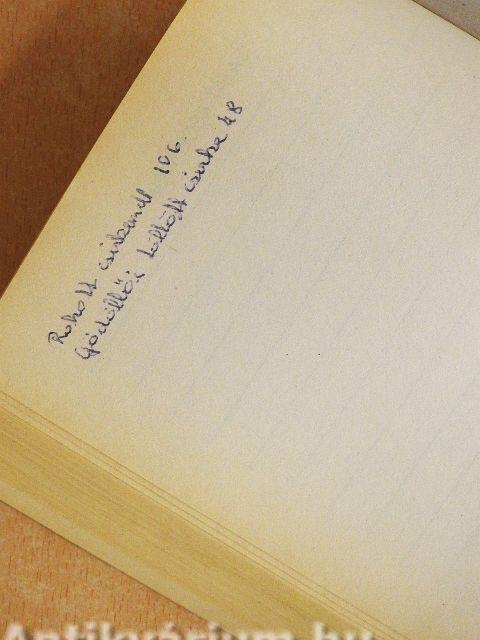 Rakott csirkemell 106.
Gödöllői töltött csirke 48
Antikvárium.hu